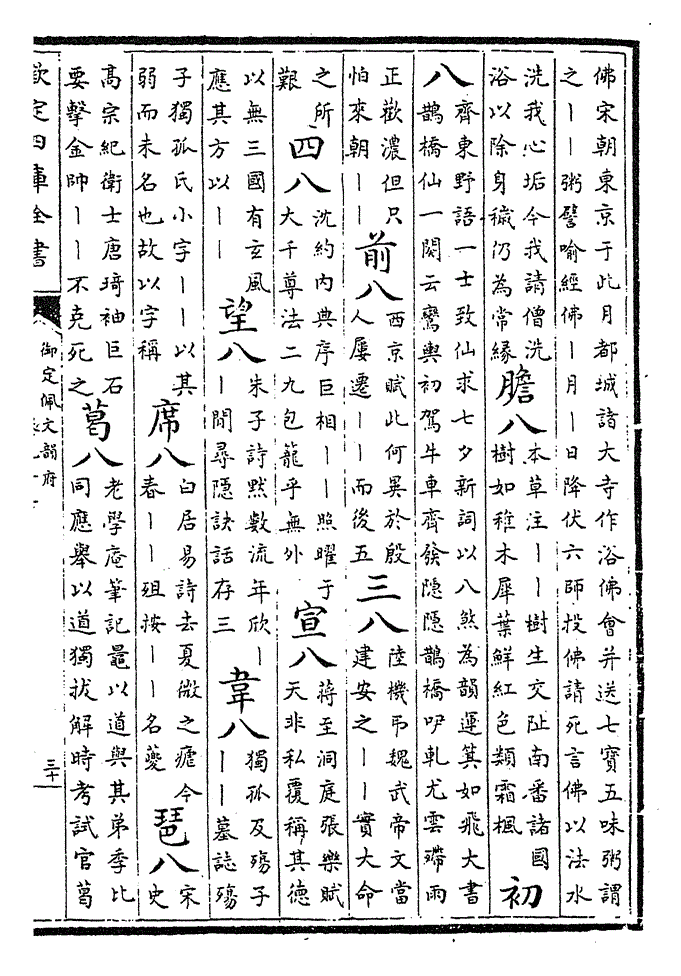 佛宋朝東京于此月都城諸大寺作浴佛會并送七寶五味粥謂
之丨丨粥譬喻經佛丨月丨日降伏六師投佛請死言佛以法水
洗我心垢今我請僧洗
浴以除身穢仍為常緣
膽八
本草注丨丨樹生交趾南番諸國
樹如稚木犀葉鮮紅色類霜楓
初
八
齊東野語一士致仙求七夕新詞以八煞為韻運箕如飛大書
鵲橋仙一闋云鸞輿初駕牛車齊發隱隱鵲橋咿軋尤雲殢雨
正歡濃但只
怕來朝丨丨
前八
西京賦此何異於殷
人屢遷丨丨而後五
三八
陸機弔魏武帝文當
建安之丨丨實大命
之所
艱
四八
沈約內典序巨相丨丨照曜于
大千尊法二九包籠乎無外
宣八
蔣至洞庭張樂賦
天非私覆稱其德
以無三國有玄風
應其方以丨丨
望八
朱子詩默數流年欣丨
丨間尋隱訣話存三
韋八
獨孤及殤子
丨丨墓誌殤
子獨孤氏小字丨丨以其
弱而未名也故以字稱
席八
白居易詩去夏微之瘧今
春丨丨殂按丨丨名夔
琶八
宋
史
高宗紀衛士唐琦袖巨石
要擊金帥丨丨不克死之
葛八
老學庵筆記鼂以道與其弟季比
同應舉以道獨拔解時考試官葛
欽定四庫全書
御定佩文韻府
三十